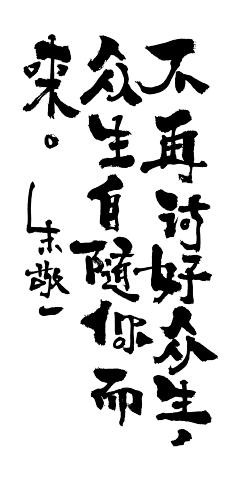 不再讨好众生，
众生自随你而
来。
朱敬一